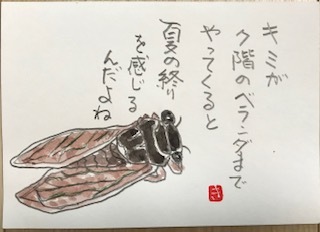 キミが
7階のベランダまで
やってくると
夏の終り
を感じる
んだよね